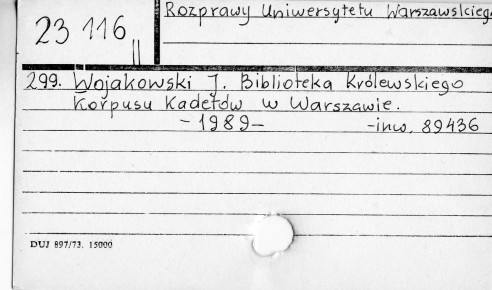 Rozprawy Uniwersytetu Warszawskiego
23 116 II
299. Wojakowski J. Biblioteka Królewskiego
Korpusu Kadetów w Warszawie.
- 1989 - - inw. 89436
DUJ 897/73. 15000